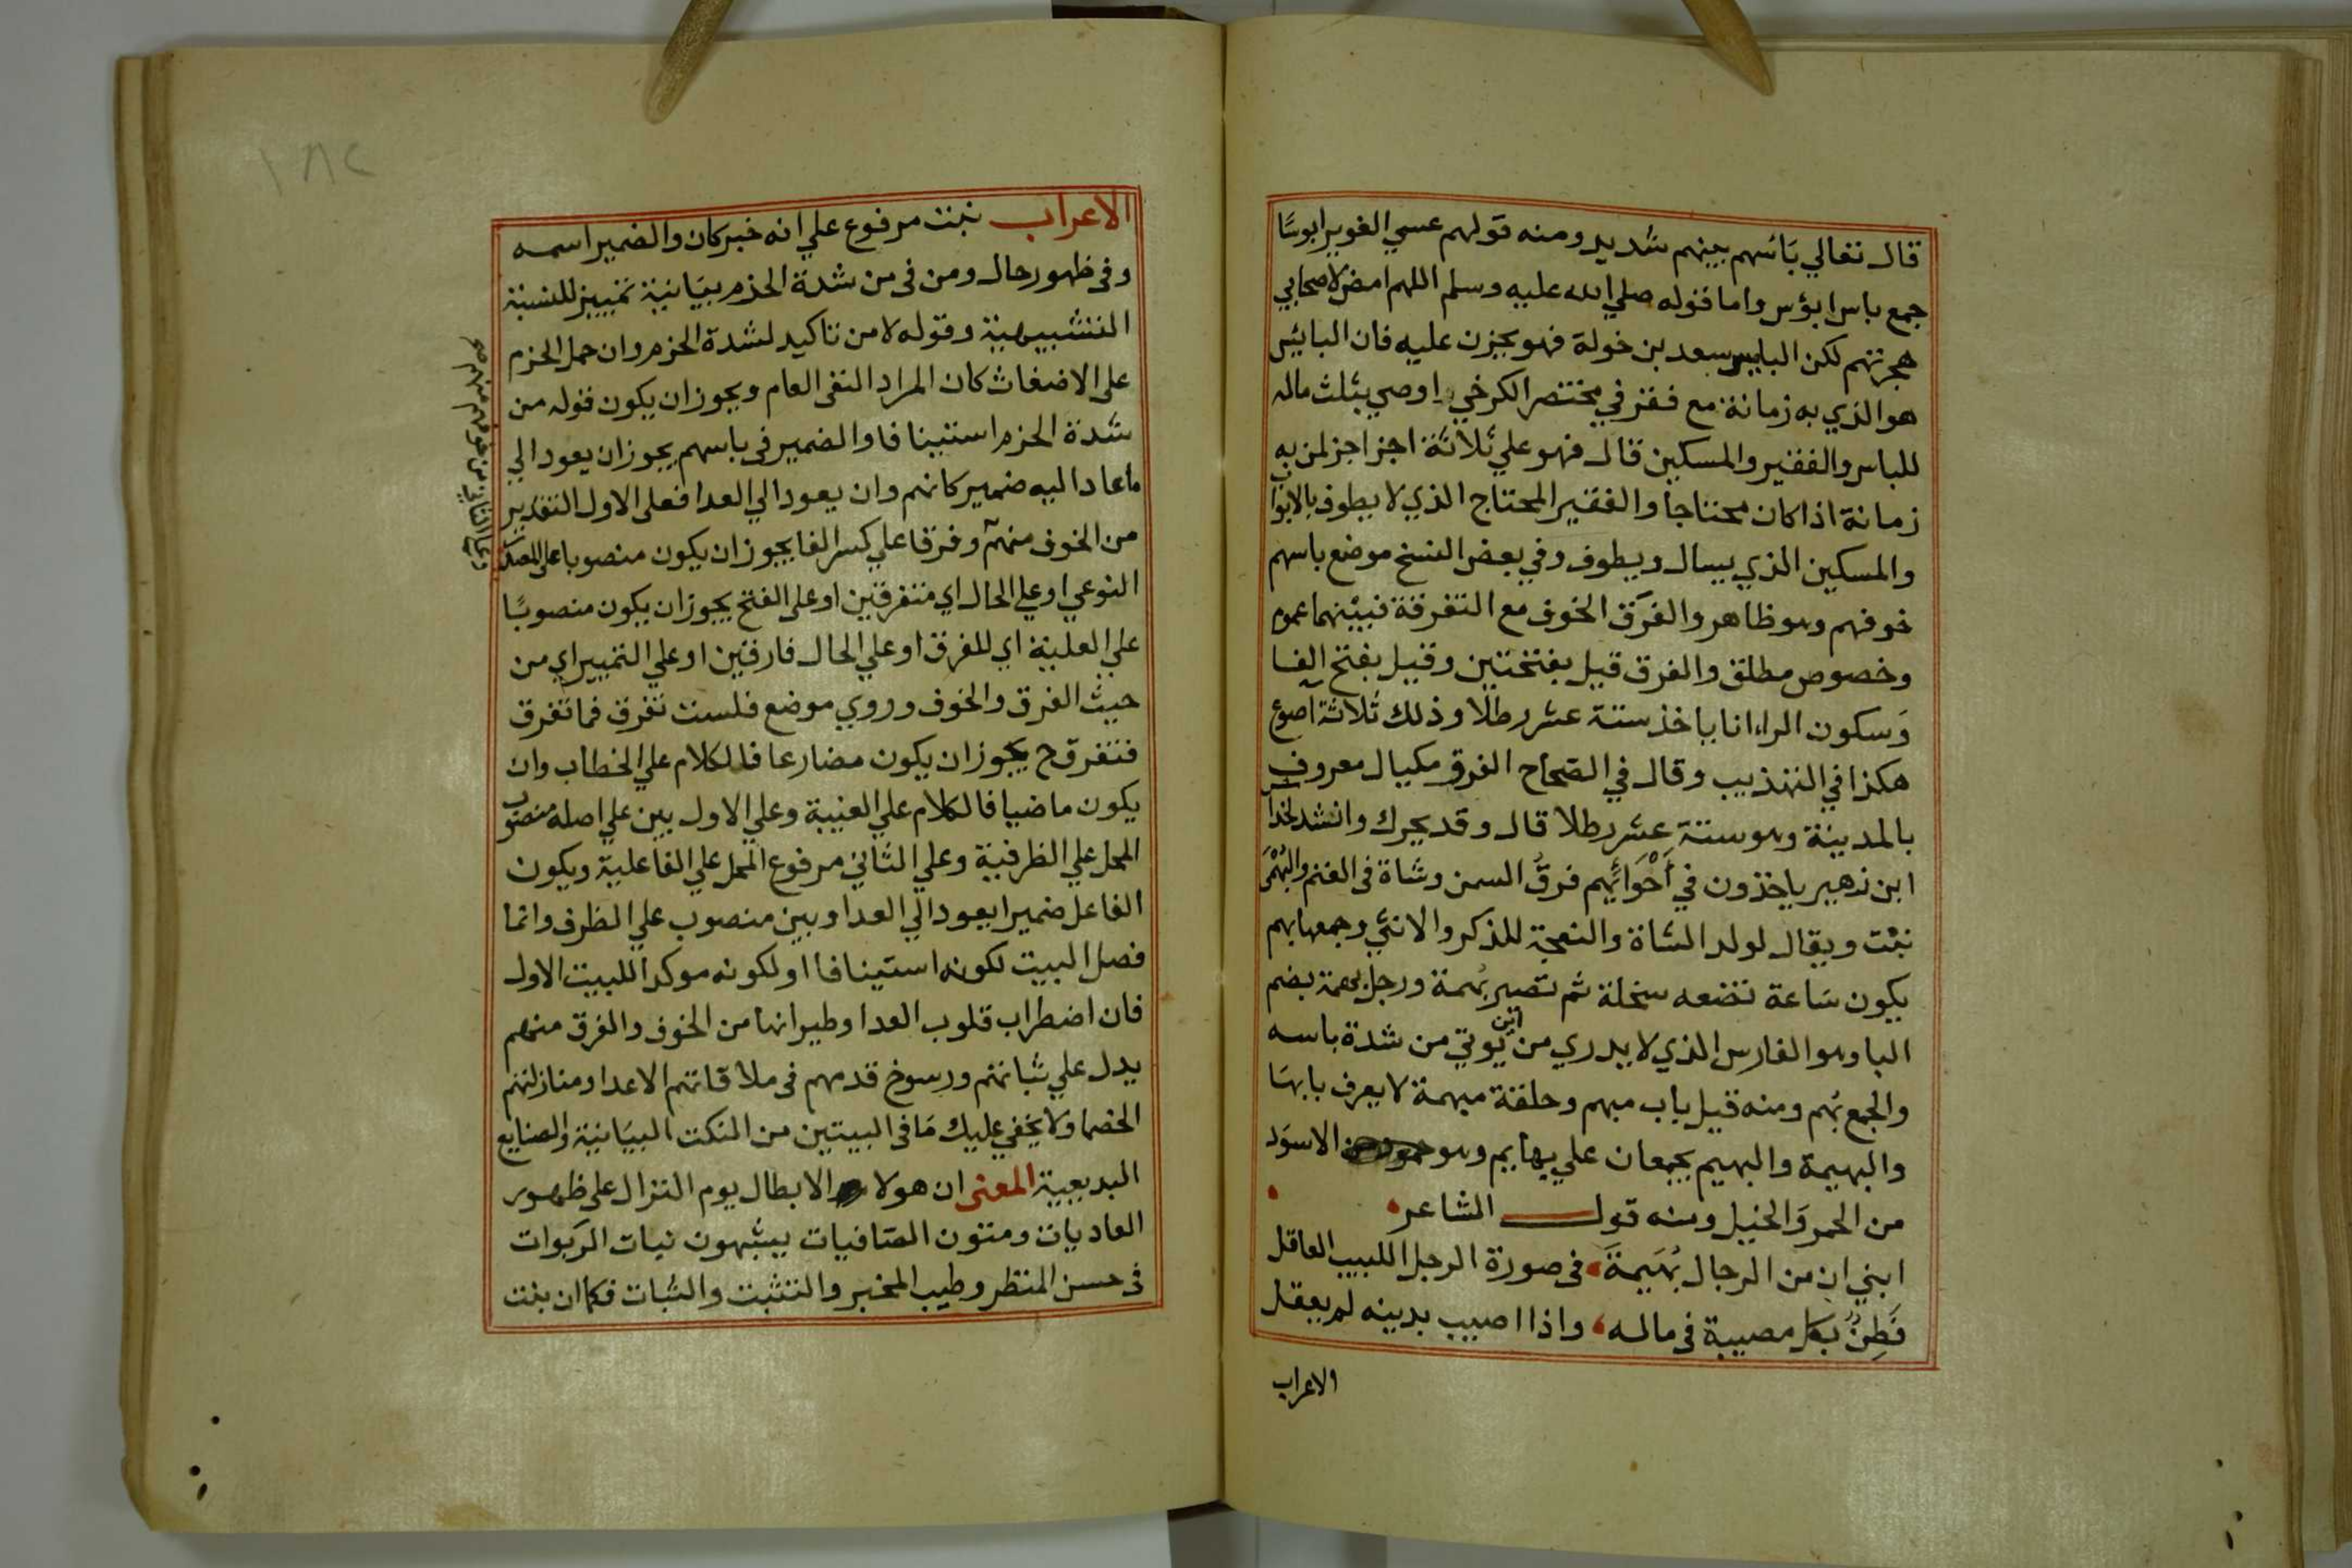 قال تعالي بَاسُهم بينهم شديد ومنه قولهم عسي الغوير ابوسًا
جمع باس ابؤس واما قوله صلي الله عليه وسلم اللهم امض لاصحابي
هجرتهم لكن البايس سعد بن خولة فهو يحزن عليه فان البائيس
هو الذي به زمانة مع فقر في مختصر الكرخي اوصي بثلث ماله
للباس والفقير والمسكين قال فهو علي ثلاثة اجزا جز لمن به
زمانة اذا كان محتاجا والفقير المحتاج الذي لا يطوف بالابوا
والمسكين الذي يسال ويطوف وفي بعض النسخ موضع باسهم
خوفهم وهو ظاهر والفَرَق الخوف مع التفرقة فبينهما عموم
وخصوص مطلق والفرق قيل بفتحتين وقيل بفتح الفا
وَسكون الراء انا ياخذ ستة عشر رطلا وذلك ثلاثة اصوع
هكذا في التهذيب وقال في الصحاح الفرق مكيال معروف
بالمدينة وهو ستة عشر رطلا قال وقد يحرك وانشد لخدا
ابن زهير ياخذون في أَخْوَائهم فرقُ السمن وشاة في الغنم والبُهْمَى
نبْت ويقال لولد الشاة والنعجة للذكر والانثي وجمعها بهم
يكون سَاعة تضعه سخلة ثم تصير بُهمة ورجل بُهمة بضم
البا وهو الفارس الذي لا يدري من اين يُوتي من شدة باسه
والجمع بُهم ومنه قيل باب مبهم وحلقة مبهمة لا يعرف بابهَا
والبهيمة والبهيم يجمعان علي بهايم وهو الاسوَد
من الحمر وَالخيل ومنه قول الشاعر
ابني ان من الرجال بُهَيمَةً في صورة الرجل اللبيب العاقل
فَطِنٌ بكل مصيبة في ماله واذا اصيب بدينه لم يعقل
الاعراب
١٨٢
الاعراب نبت مرفوع علي انه خبر كان والضمير اسمه
وفي ظهور حال ومن في من شدة الحزم بيَانية تمييز للنسبة
التشبيهية وقوله لا من تاكيد لشدة الحزم وان حمل الحزم
على الاضغاث كان المراد النفى العام ويجوز ان يكون قوله من
شدة الحزم استينافا والضمير في باسهم يجوز ان يعود الي
ما عاد اليه ضمير كانهم وان يعود الي العدا فعلى الاول التقدير
من الخوف منهم وفرقا علي كسر الفا يجوز ان يكون منصوبا على المصدر
النوعي او علي الحال اي متفرقين او على الفتح يجوز ان يكون منصوبًا
علي العلية اي للفرق او علي الحال فارقين او علي التمييز اي من
حيث الفرق والخوف وروي موضع فلست تفرق فما تفرق
فتفرق ح يجوز ان يكون مضارعا فالكلام علي الخطاب وان
يكون ماضيا فالكلام علي الغيبة وعلي الاول بين علي اصله منصوب
المحل علي الظرفية وعلي الثاني مرفوع المحل علي الفاعلية ويكون
الفاعل ضميرا يعود الي العدا وبين منصوب علي الظرف وانما
فصل البيت لكونه استينافا او لكونه موكدا للبيت الاول
فان اضطراب قلوب العدا وطيرانها من الخوف والفرق منهم
يدل علي شباتهم ورسوخ قدمهم في ملاقاتهم الاعدا ومنازلتهم
الخصما ولا يخفي عليك مَا في البيتين من النكت البيَانية والصنايع
البديعية المعنى ان هولا الابطال يوم النزال على ظهور
العاديات ومتون الصَافيات يشبهون نبات الربوات
في حسن المنظر وطيب المخبر والتثبت والثبات فكما ان بنت